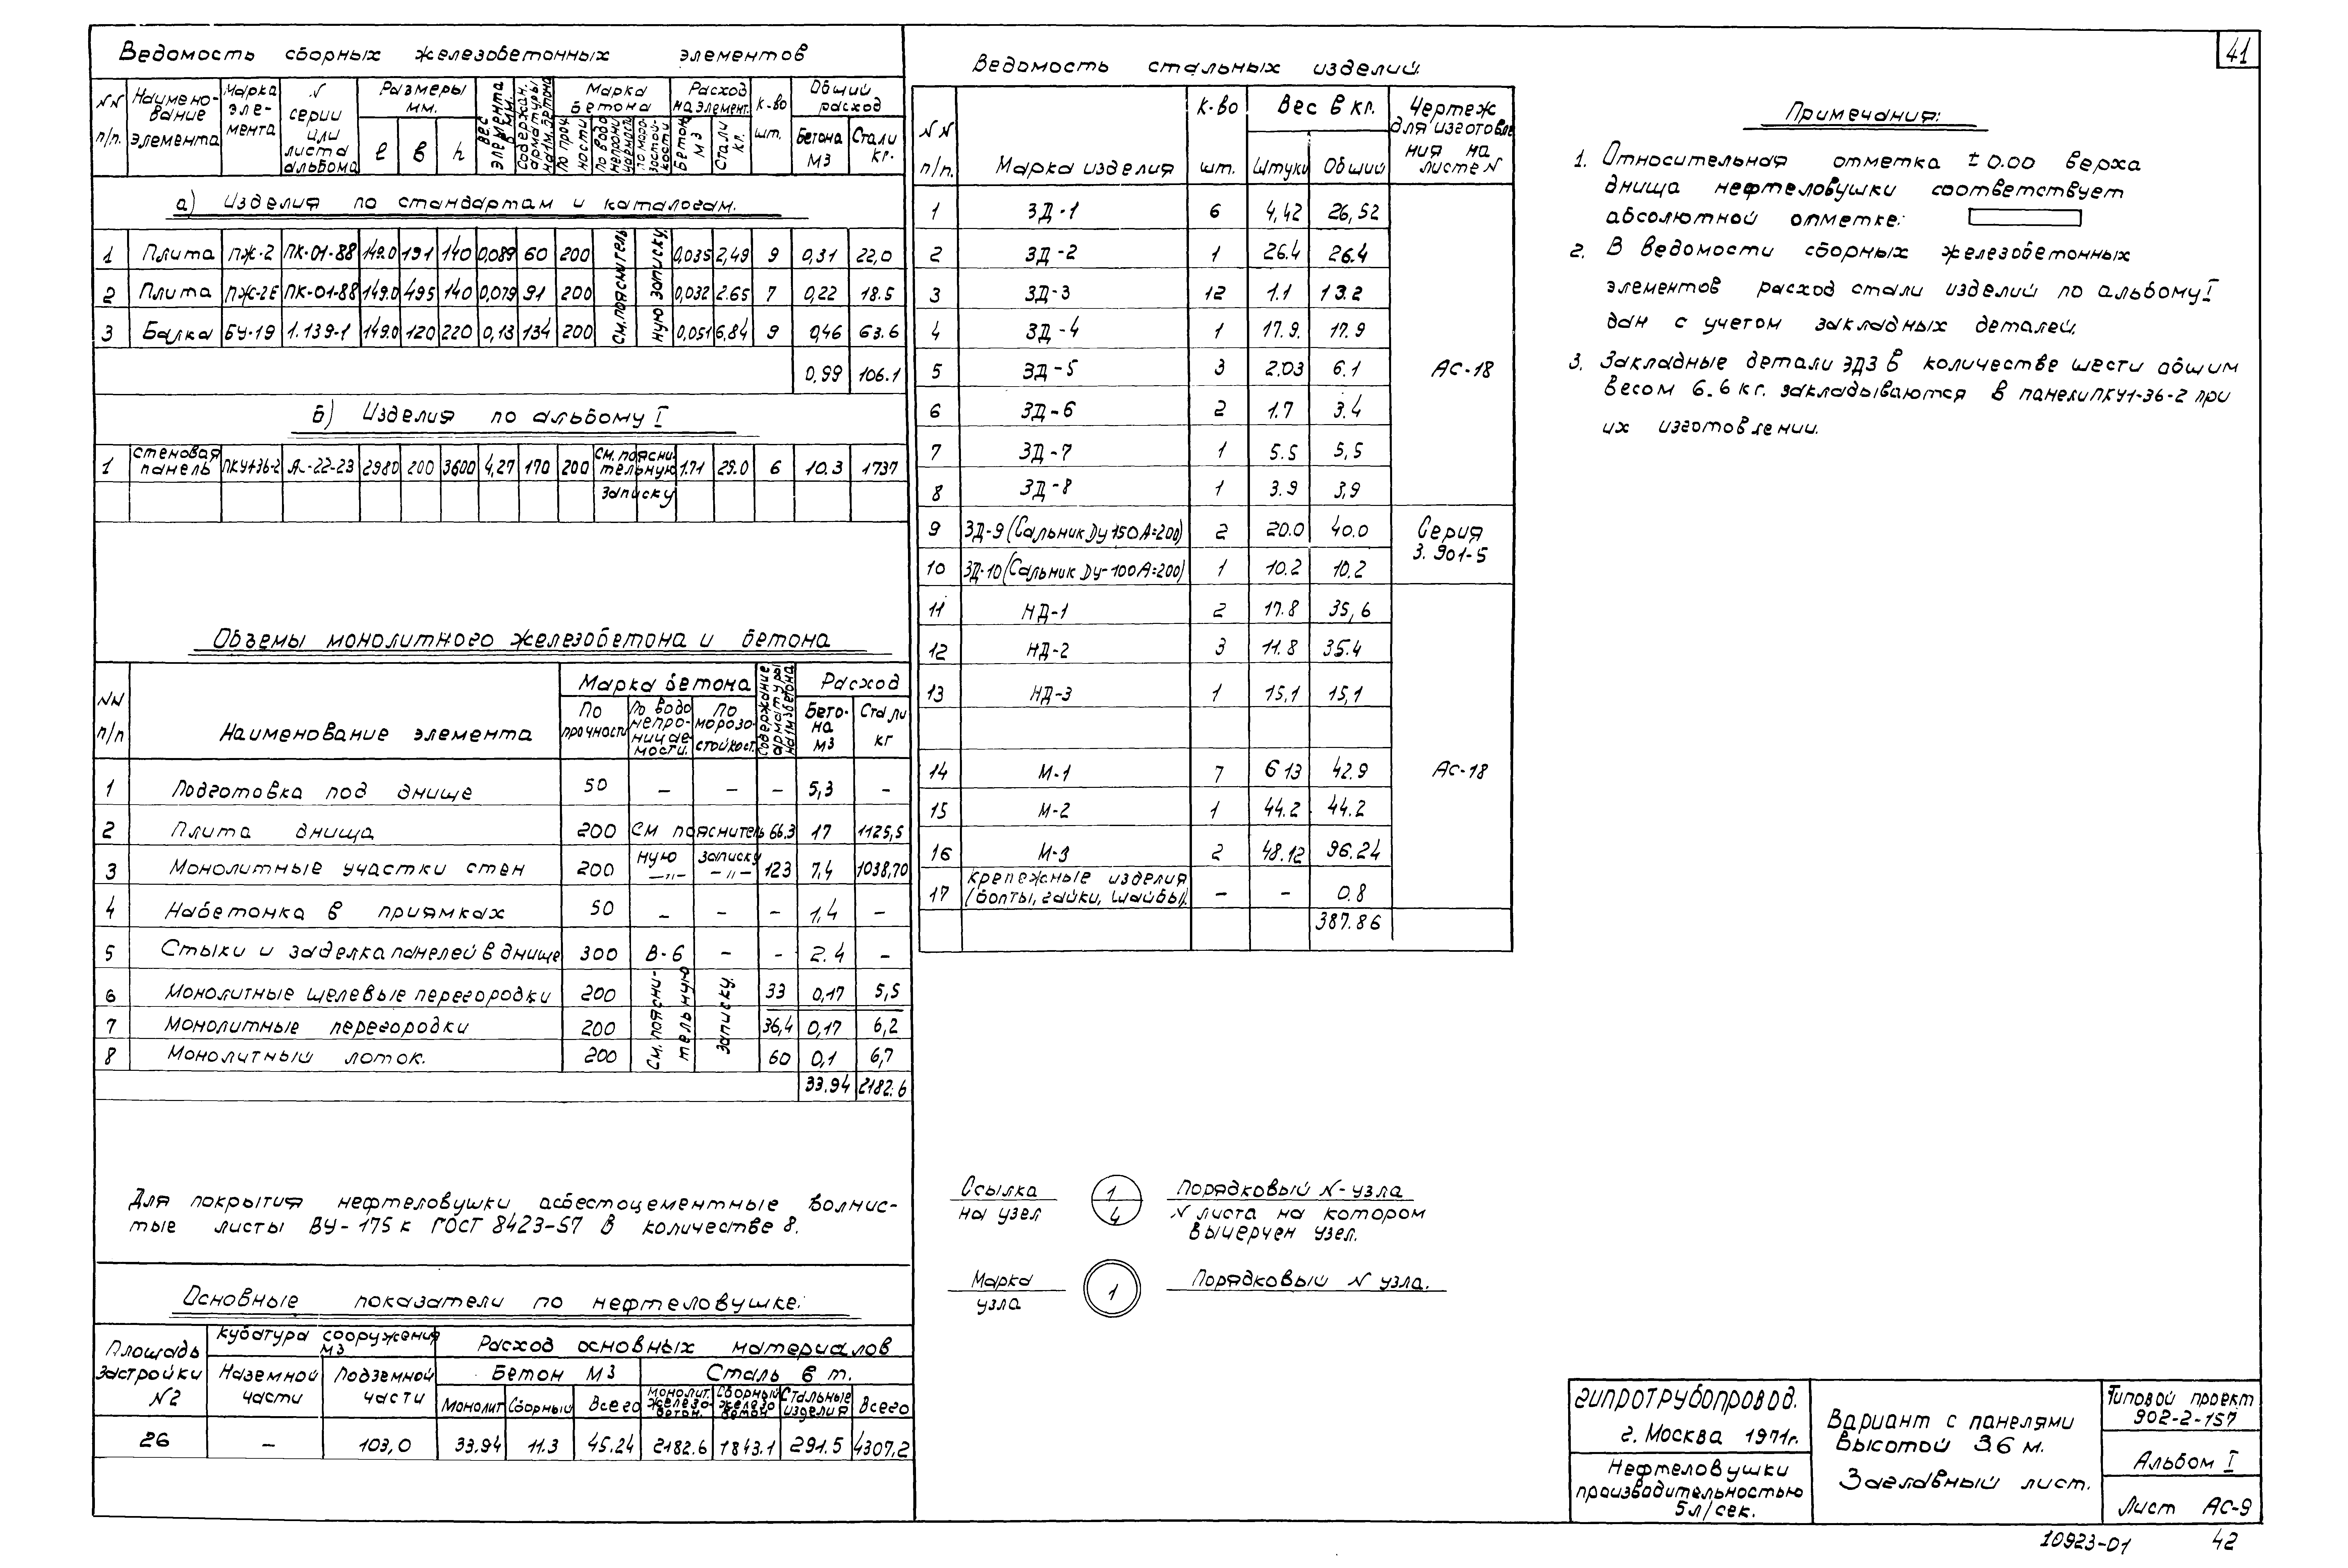 41
Ведомость сборных железобетонных элементов
NN п/п. Наименование элемента Марка элемента N серии или листа альбома Размеры мм. l в h Вес элемента в мм. Содержан. арматуры на 1м. бетона Марка бетона По прочности По водонепроницаемости По морозостойкости Расход на элемент. Бетон м3 Стали кг. К-во шт. Общий расход Бетона м3 Стали кг.
а) Изделия по стандартам и каталогам.
1 Плита ПЖ-2 ПК-01-88 149.0 191 140 0,089 60 200 0,035 2,49 9 0,31 22,0
2 Плита ПЖ-2Е ПК-01-88 149.0 495 140 0,079 91 200 0,032 2.65 7 0,22 18.5
3 Балка БУ-19 1.139-1 149.0 120 220 0,13 134 200 0,051 6,84 9 0,46 63.6
См. пояснитель ную записку.
0,99 106.1
б) Изделия по альбому I
1 Стеновая панель ПКУ1-36-2 А-22-23 2980 200 3600 4,27 170 200 См. поясни- тельную записку 1.71 29.0 6 10.3 1737
Объемы монолитного железобетона и бетона
NN п/п Наименование элемента Марка бетона По прочности По водонепроницаемости. По морозостойкост. Содержание арматуры на 1м3 бетона Расход Бетона м3 Стали кг
1 Подготовка под днище 50 – – – 5,3 –
2 Плита днища 200 См пояснитель 66.3 17 1125,5
3 Монолитные участки стен 200 ную записку –"– –"– 123 7,4 1038,70
4 Набетонка в приямках 50 – – – 1,4 –
5 Стыки и заделка панелей в днище 300 В-6 – – 2.4 –
6 Монолитные щелевые перегородки 200 33 0,17 5,5
7 Монолитные перегородки 200 36,4 0,17 6,2
8 Монолитный лоток. 200 60 0,1 6,7
См. поясни- тельную записку.
33.94 2182.6
Для покрытия нефтеловушки асбестоцементные волнис-
тые листы ВУ-175к ГОСТ 8423-57 в количестве 8.
Основные показатели по нефтеловушке:
Площадь застройки N2 Кубатура сооружения м3 Наземной части Подземной части Расход основных материалов
Бетон м3 Монолит Сборный Всего Сталь в т. Монолит. железобетон. Сборный железобетон Стальные изделия Всего
26 – 103,0 33.94 11.3 45.24 2182.6 1843.1 291.5 4307,2
Ведомость стальных изделий.
NN п/п. Марка изделия К-во шт. Вес в кг. Штуки Общий Чертеж для изготовления на листе N
1 ЗД-1 6 4,42 26,52
2 ЗД-2 1 26.4 26.4
3 ЗД-3 12 1.1 13.2
4 ЗД-4 1 17.9. 17.9
5 ЗД-5 3 2.03 6.1 АС-18
6 ЗД-6 2 1.7 3.4
7 ЗД-7 1 5.5 5,5
8 ЗД-8 1 3.9 3,9
9 ЗД-9 (Сальник Ду 150 А=200) 2 20.0 40.0 Серия
3.901-5
10 ЗД-10 (Сальник Ду-100 А=200) 1 10.2 10.2
11 НД-1 2 17.8 35,6
12 НД-2 3 11.8 35.4
13 НД-3 1 15,1 15,1
14 М-1 7 6 13 42.9 АС-18
15 М-2 1 44.2 44.2
16 М-3 2 48.12 96.24
17 Крепежные изделия (болты, гайки, шайбы). – – 0.8
387.86
Ссылка на узел 1 4 Порядковый N-узла
N листа на котором
вычерчен узел.
Марка узла 1 Порядковый N узла.
Примечания:
1. Относительная отметка ±0.00 верха
днища нефтеловушки соответствует
абсолютной отметке:
2. В ведомости сборных железобетонных
элементов расход стали изделий по альбому I
дан с учетом закладных деталей.
3. Закладные детали ЗД3 в количестве шести общим
весом 6.6 кг. закладываются в панели ПКУ1-36-2 при
их изготовлении.
Гипротрубопровод.
г. Москва 1971г.
Нефтеловушки
производительностью
5л/сек.
Вариант с панелями
высотой 3.6 м.
Заглавный лист.
Типовой проект
902-2-157
Альбом I
Лист АС-9
10923-01 42